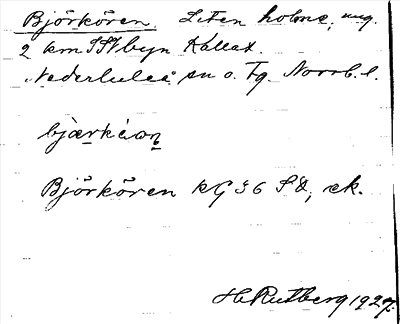 Björkören. Liten holme, ung.
2 km SSV byn Kallax.
Nederluleå sn o. Tg. Norrb. l.
Björkören kG 36 SÖ, ek.
H. Rutberg 1927.